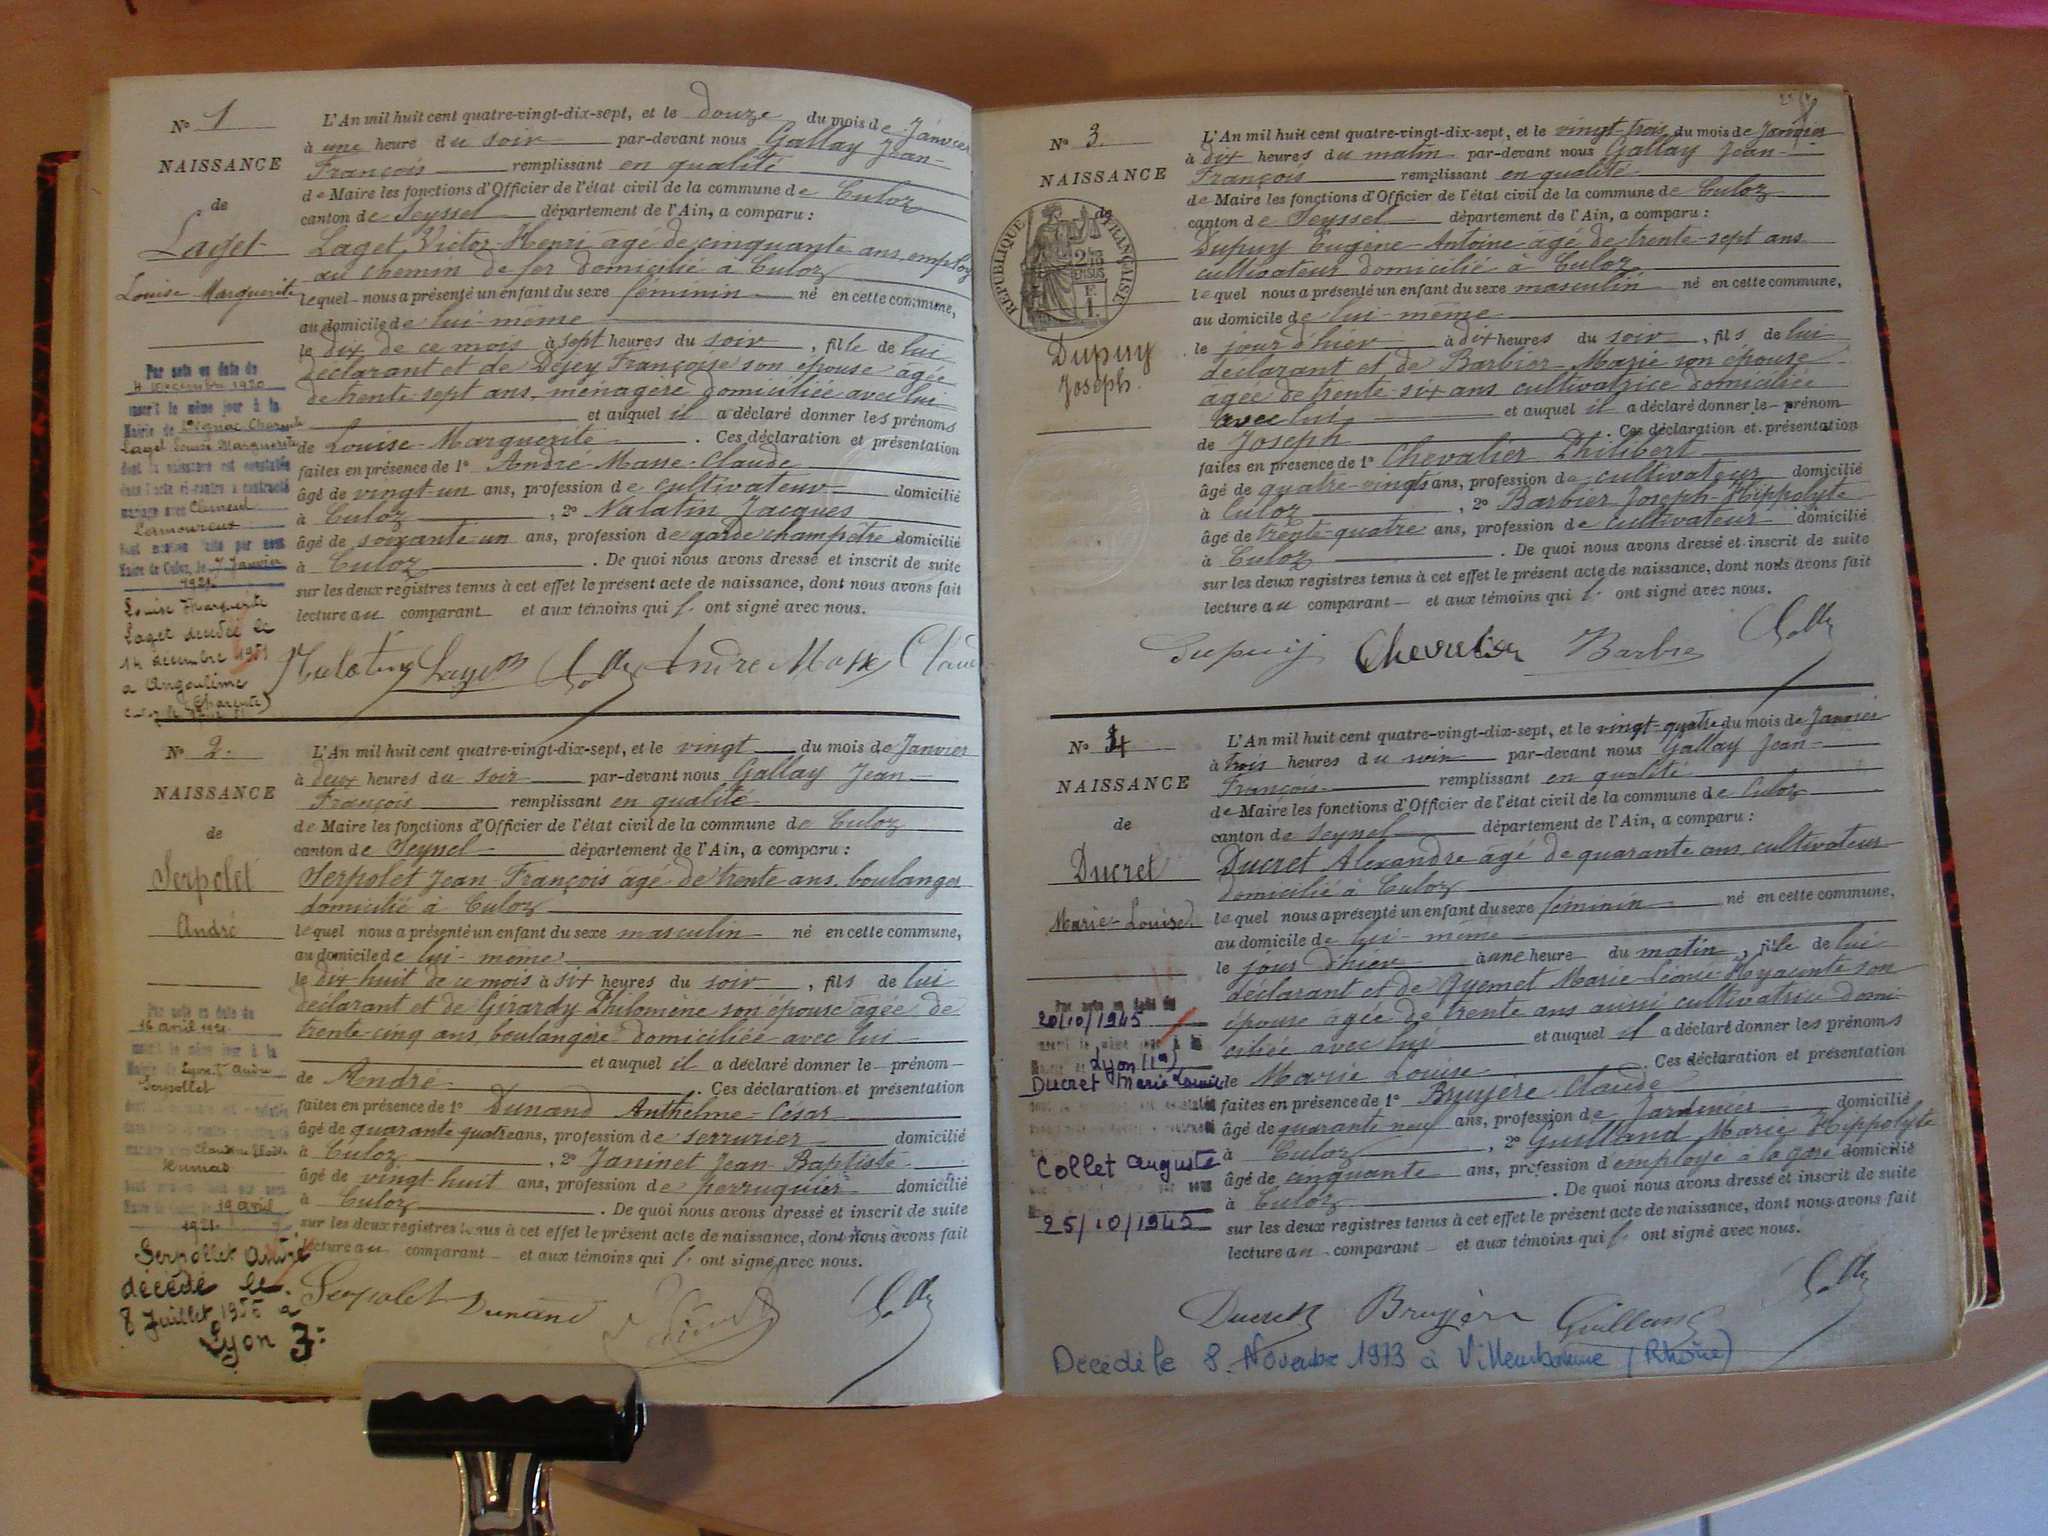 N° 1
NAISSANCE
de
Laget
Louise Marguerite
Par acte en date du
4 Décembre 1920
inscrit le même jour à la
Mairie de
Laget Louise Marguerite
dont la naissance est constatée
dans l'acte ci-contre a contracté
mariage avec Clément
Lamoureux
Maire de Culoz, le 7 Janvier
1921
Louise Marguerite
Laget décédée le
14 décembre 1951
a Angoulême
(Charente)
L'An mil huit cent quatre-vingt-dix-sept, et le douze du mois de Janvier
à une heure du soir par-devant nous Gallay Jean-
François remplissant en qualité
de Maire les fonctions d'Officier de l'état civil de la commune de Culoz
canton de Seyssel département de l'Ain, a comparu :
Laget Victor Henri âgé de cinquante ans employé
au chemin de fer domicilié à Culoz
lequel nous a présenté un enfant du sexe féminin né en cette commune,
au domicile de lui-même
le dix de ce mois à sept heures du soir, fille de lui
déclarant et de Déjey Françoise son épouse âgée
de trente sept ans, ménagère domiciliée avec lui
et auquel il a déclaré donner les prénoms
de Louise Marguerite. Ces déclaration et présentation
faites en présence de 1° André-Masse Claude
âgé de vingt-un ans, profession de cultivateur domicilié
à Culoz, 2° Natatin Jacques
âgé de soixante-un ans, profession de garde champêtre domicilié
à Culoz. De quoi nous avons dressé et inscrit de suite
sur les deux registres tenus à cet effet le présent acte de naissance, dont nous avons fait
lecture au comparant et aux témoins qui l' ont signé avec nous.
André Masse Claud
N° 2.
NAISSANCE
de
Serpolet
André
Par acte en date du
16 avril 1921
inscrit le même jour à la
Mairie de Lyon André
Serpollet
19 avril
1921
Serpollet André
décédé le
8 Juillet 1955 a
Lyon 3e
L'An mil huit cent quatre-vingt-dix-sept, et le vingt du mois de Janvier
à deux heures du soir par-devant nous Gallay Jean-
François remplissant en qualité
de Maire les fonctions d'Officier de l'état civil de la commune de Culoz
canton de Seyssel département de l'Ain, a comparu :
Serpolet Jean François âgé de trente ans, boulanger
domicilié à Culoz
lequel nous a présenté un enfant du sexe masculin né en cette commune,
au domicile de lui-même
le dix huit de ce mois à six heures du soir, fils de lui
déclarant et de Girardy Philomène son épouse âgée de
trente cinq ans, boulangère domiciliée avec lui
et auquel il a déclaré donner le prénom
de André. Ces déclaration et présentation
faites en présence de 1° Dunand Anthelme-César
âgé de quarante quatre ans, profession de serrurier domicilié
à Culoz, 2° Janinet Jean-Baptiste
âgé de vingt-huit ans, profession de perruquier domicilié
à Culoz. De quoi nous avons dressé et inscrit de suite
sur les deux registres tenus à cet effet le présent acte de naissance, dont nous avons fait
lecture au comparant et aux témoins qui l' ont signé avec nous.
Serpolet Dunand
N° 3.
NAISSANCE
de
RÉPUBLIQUE FRANÇAISE
Dupuy
Joseph.
L'An mil huit cent quatre-vingt-dix-sept, et le vingt-trois du mois de Janvier
à dix heures du matin par-devant nous Gallay Jean-
François remplissant en qualité
de Maire les fonctions d'Officier de l'état civil de la commune de Culoz
canton de Seyssel département de l'Ain, a comparu :
Dupuy Eugène-Antoine âgé de trente-sept ans
cultivateur domicilié à Culoz
lequel nous a présenté un enfant du sexe masculin né en cette commune,
au domicile de lui-même
le jour d'hier à dix heures du soir, fils de lui
déclarant et de Barbier Marie son épouse
âgée de trente-six ans cultivatrice domiciliée
avec lui et auquel il a déclaré donner le prénom
de Joseph. Ces déclaration et présentation
faites en présence de 1° Chevalier Philibert
âgé de quatre-vingts ans, profession de cultivateur domicilié
à Culoz, 2° Barbier Joseph-Hippolyte
âgé de trente-quatre ans, profession de cultivateur domicilié
à Culoz. De quoi nous avons dressé et inscrit de suite
sur les deux registres tenus à cet effet le présent acte de naissance, dont nous avons fait
lecture au comparant et aux témoins qui l' ont signé avec nous.
Dupuy
N° 4
NAISSANCE
de
Ducret
Marie-Louise
Par acte en date du
20/10/1945
Lyon (1er)
Ducret Marie Louise
Collet Auguste
25/10/1945
L'An mil huit cent quatre-vingt-dix-sept, et le vingt-quatre du mois de Janvier
à trois heures du soir par-devant nous Gallay Jean-
François remplissant en qualité
de Maire les fonctions d'Officier de l'état civil de la commune de Culoz
canton de Seyssel département de l'Ain, a comparu :
Ducret Alexandre âgé de quarante ans cultivateur
domicilié à Culoz
lequel nous a présenté un enfant du sexe féminin né en cette commune,
au domicile de lui-même
le jour d'hier à une heure du matin, fille de lui
déclarant et de Gyemet Marie Léonie Hyacinte son
épouse âgée de trente ans aussi cultivatrice domi-
ciliée avec lui et auquel il a déclaré donner les prénoms
de Marie Louise. Ces déclaration et présentation
faites en présence de 1° Bruyère Claude
âgé de quarante neuf ans, profession de Jardinier domicilié
à Culoz, 2° Guilland Marie Hippolyte
âgé de cinquante ans, profession d'employé à la gare domicilié
à Culoz. De quoi nous avons dressé et inscrit de suite
sur les deux registres tenus à cet effet le présent acte de naissance, dont nous avons fait
lecture au comparant et aux témoins qui l' ont signé avec nous.
Ducret Bruyère Guilland
Décédé le 8 Novembre 1973 à Villeurbanne (Rhône)